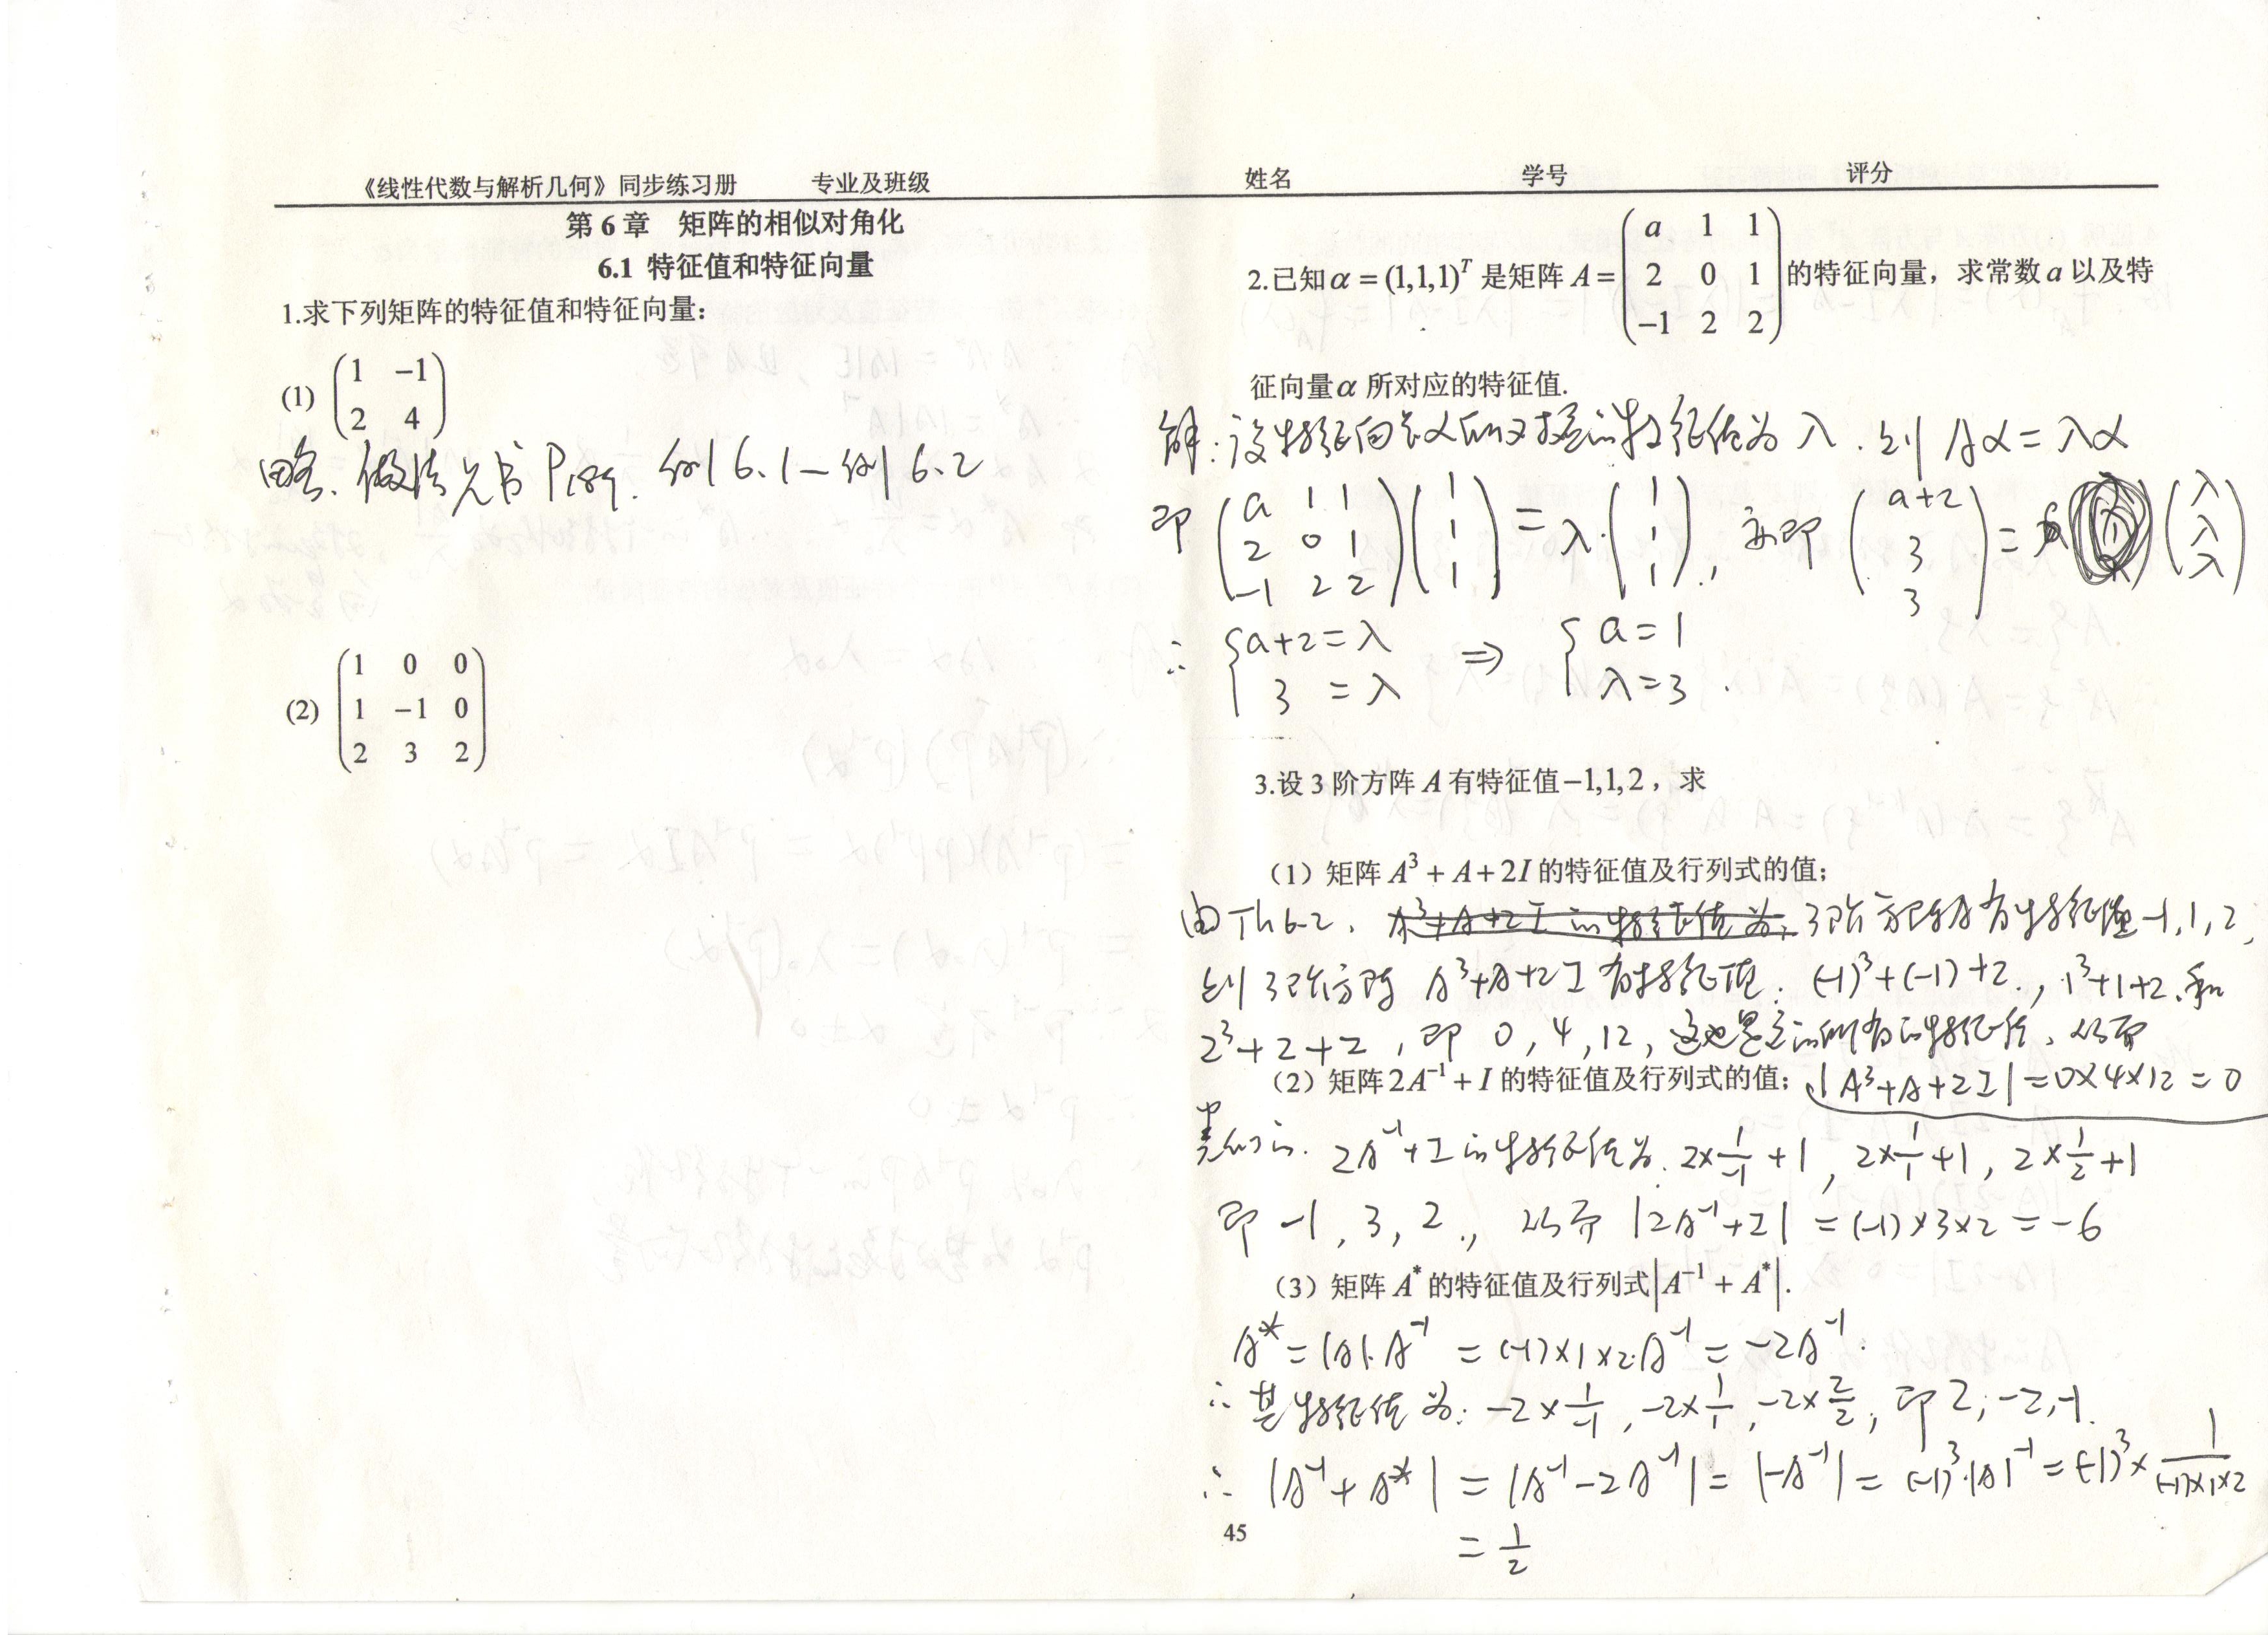 《线性代数与解析几何》同步练习册 专业及班级 姓名 学号 评分
第 6 章 矩阵的相似对角化
6.1 特征值和特征向量
1.求下列矩阵的特征值和特征向量：
(1) (1 −1
2 4)
略、做法见书 P189. 例 6.1—例 6.2
(2) (1 0 0
1 −1 0
2 3 2)
2.已知 α = (1,1,1)^T 是矩阵 A = (a 1 1
2 0 1
−1 2 2) 的特征向量，求常数 a 以及特
征向量 α 所对应的特征值.
解：设特征向量α所对应的特征值为 λ. 则 Aα = λα
即 (a 1 1
2 0 1
−1 2 2) (1
1
1) = λ·(1
1
1), 亦即 (a+2
3
3) = (λ
λ
λ)
∴ {a+2 = λ
3 = λ ⇒ {a = 1
λ = 3 .
3.设 3 阶方阵 A 有特征值 −1,1,2，求
（1）矩阵 A³ + A + 2I 的特征值及行列式的值；
由 Th 6.2、 A³+A+2I 的特征值为: 3阶方阵A有特征值 -1, 1, 2,
则 3阶方阵 A³+A+2I 有特征值: (-1)³+(-1)+2., 1³+1+2.和
2³+2+2 , 即 0, 4, 12, 这也是它的所有的特征值、从而
（2）矩阵 2A⁻¹ + I 的特征值及行列式的值； |A³+A+2I| = 0×4×12 = 0
类似的. 2A⁻¹+I 的特征值为. 2×1/-1 +1, 2×1/1+1, 2×1/2+1
即 -1, 3, 2., 从而 |2A⁻¹+I| = (-1)×3×2 = -6
（3）矩阵 A* 的特征值及行列式 |A⁻¹ + A*|.
A* = |A|·A⁻¹ = (-1)×1×2·A⁻¹ = -2A⁻¹.
∴ 其特征值为: -2×1/-1, -2×1/1, -2×2/2, 即 2, -2, -1.
∴ |A⁻¹+A*| = |A⁻¹-2A⁻¹| = |-A⁻¹| = (-1)³·|A|⁻¹ = (-1)³× 1/(-1)×1×2
= 1/2
45